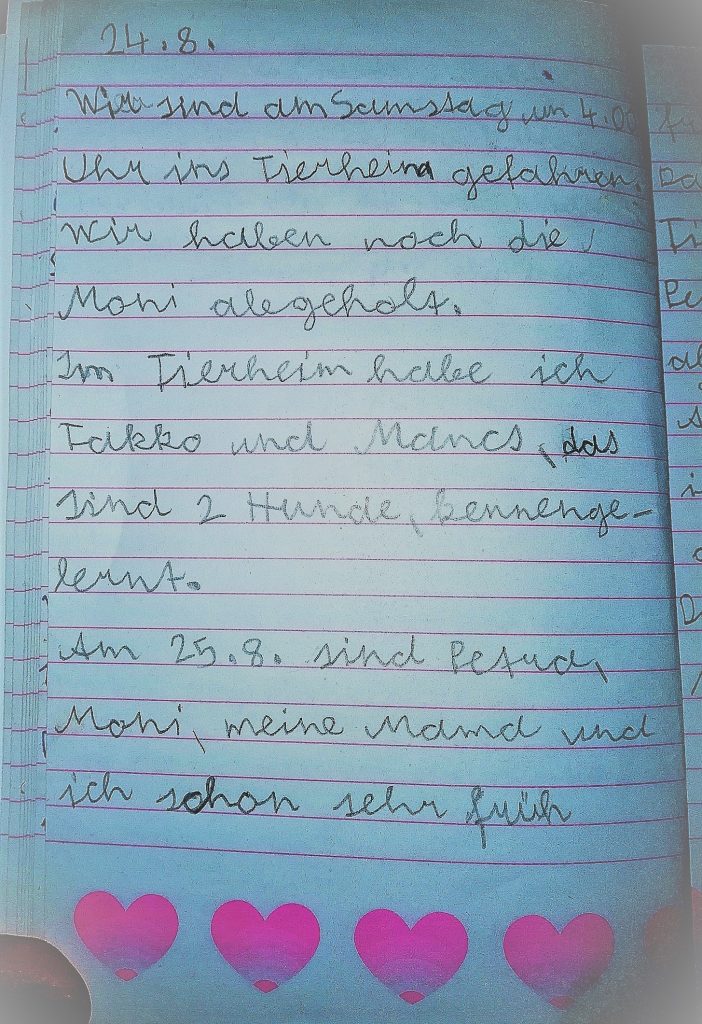 24.8.
Wir sind am Samstag um 4.00
Uhr ins Tierheim gefahren.
Wir haben noch die
Moni abgeholt.
Im Tierheim habe ich
Fakko und Mancs, das
sind 2 Hunde, kennenge-
lernt.
Am 25.8. sind Petud,
Moni, meine Mama und
ich schon sehr früh